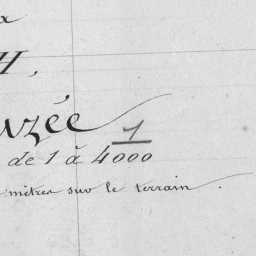 x
H,
uzée
1
de 1 à 4000
mètres sur le terrain.